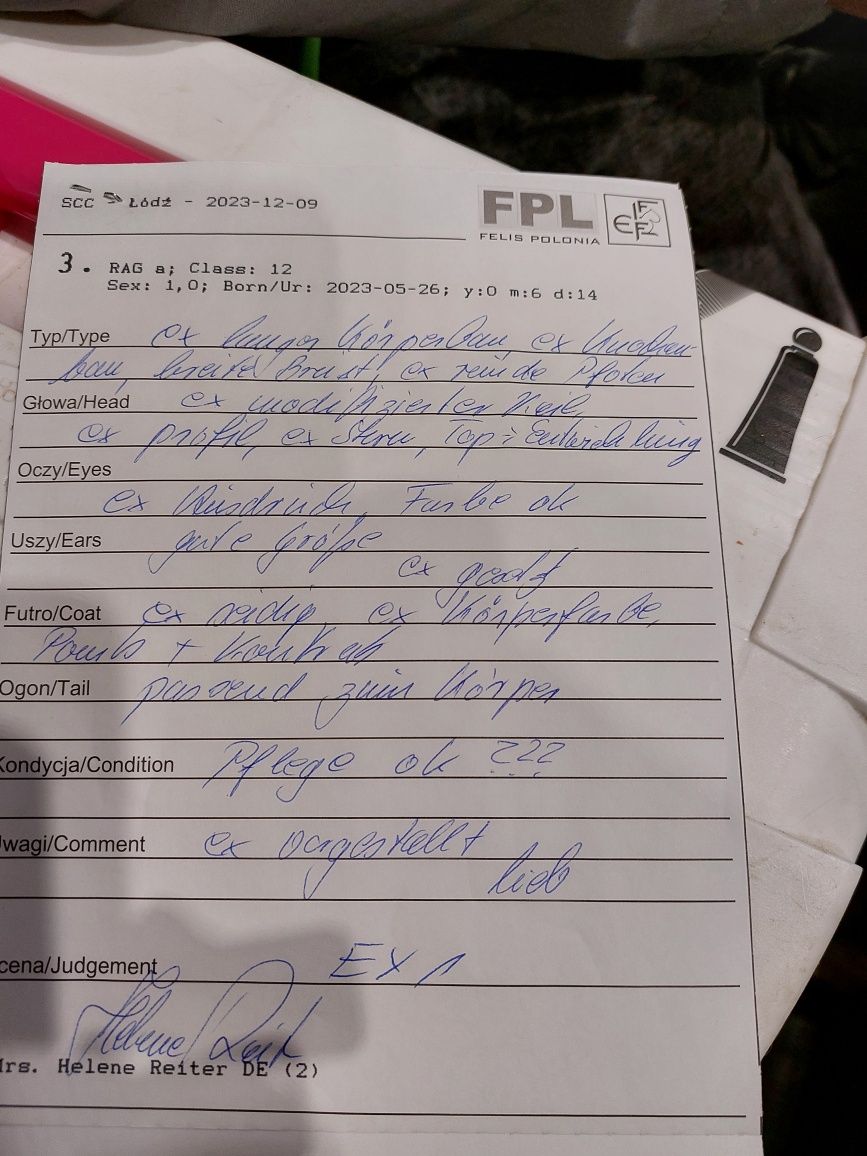 SCC Łódź - 2023-12-09
FPL
FELIS POLONIA
FIFe
3. RAG a; Class: 12
Sex: 1,0; Born/Ur: 2023-05-26; y:0 m:6 d:14
Typ/Type ex langer Körperbau, ex Knochen-
bau, breite Brust, ex runde Pfoten
Głowa/Head ex modifizierter Keil,
ex Profil, ex Stirn, Top = Entwicklung
Oczy/Eyes
ex Ausdruck, Farbe ok
Uszy/Ears gute Größe
ex
Futro/Coat ex seidig, ex Körperfarbe,
Points + Kontrast
Ogon/Tail passend zum Körper
Kondycja/Condition Pflege ok
wagi/Comment ex vorgestellt
lieb
cena/Judgement EX 1
Helene Reiter
Mrs. Helene Reiter DE (2)